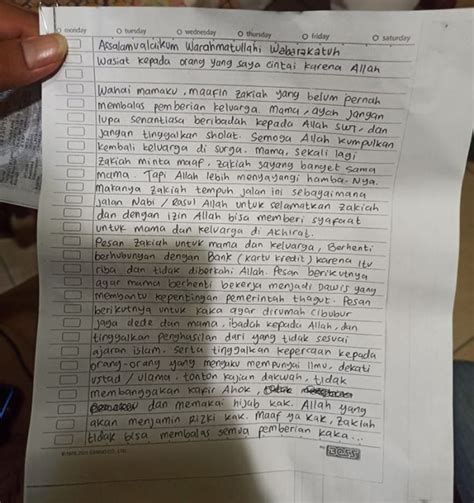 monday tuesday wednesday thursday friday saturday
Assalamualaikum Warahmatullahi Wabarakatuh
Wasiat kepada orang yang saya cintai karena Allah
Wahai mamaku, maafin zakiah yang belum pernah
membalas pemberian keluarga. Mama, ayah jangan
lupa senantiasa beribadah kepada Allah swt, dan
jangan tinggalkan sholat. Semoga Allah kumpulkan
kembali keluarga di surga. Mama, sekali lagi
zakiah minta maaf, zakiah sayang banget sama
mama. Tapi Allah lebih menyayangi hamba-Nya.
makanya zakiah tempuh jalan ini sebagaimana
jalan Nabi / Rasul Allah untuk selamatkan zakiah
dan dengan izin Allah bisa memberi syafaat
untuk mama dan keluarga di Akhirat.
Pesan zakiah untuk mama dan keluarga, Berhenti
berhubungan dengan Bank (kartu kredit) karena itu
riba dan tidak diberkahi Allah. Pesan berikutnya
agar mama berhenti bekerja menjadi Dawis yang
membantu kepentingan pemerintah thagut. Pesan
berikutnya untuk kaka agar dirumah cibubur
jaga dede dan mama, ibadah kepada Allah, dan
tinggalkan penghasilan dari yang tidak sesuai
ajaran islam. serta tinggalkan kepercaan kepada
orang-orang yang mengaku mempunyai ilmu, dekati
ustad / ulama, tonton kajian dakwah, tidak
membanggakan kafir Ahok,
dan memakai hijab kak. Allah yang
akan menjamin Rizki kak. Maaf ya kak, zakiah
tidak bisa membalas semua pemberian kaka...
BOSS